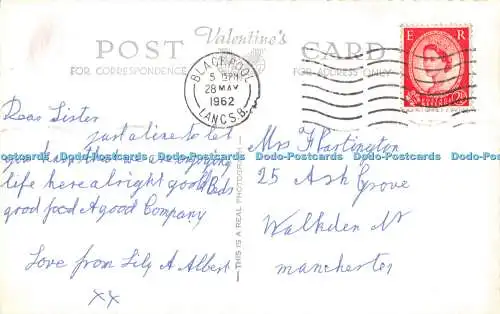 Valentine's
POST CARD
FOR CORRESPONDENCE
FOR ADDRESS ONLY
BLACKPOOL
5 15PM
28 MAY
1962
LANCS.B.
E R
Dear Sister
just a line to let
you
life here alright good Beds
good food A good Company
Love from Lily A Albert
xx
THIS IS A REAL PHOTOGRAPH
Mrs Hartington
25 Ash Grove
Walkden Nr
manchester
Dodo-Postcards Dodo-Postcards Dodo-Postcards Dodo-Postcards Dodo-Postcards Dodo-Postcards